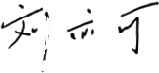 刘亦可